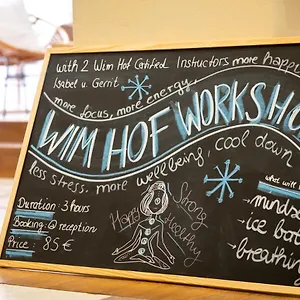 with 2 Wim Hof Certified Instructors more happy
Isabel u. Gerrit
more focus, more energy,
WIM HOF WORKSHO
less stress, more wellbeing, cool down
what will
Duration: 3 hours
Booking: @ reception
Price: 85 €
Happy
Strong
Healthy
→ minds
→ ice bat
→ breathing